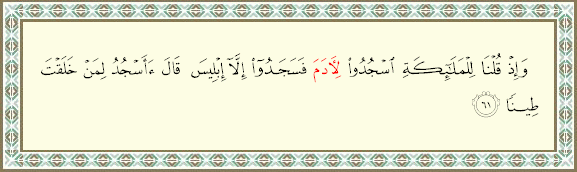 وَإِذْ قُلْنَا لِلْمَلَـٰٓئِكَةِ ٱسْجُدُوا۟ لِـَٔادَمَ فَسَجَدُوٓا۟ إِلَّآ إِبْلِيسَ قَالَ ءَأَسْجُدُ لِمَنْ خَلَقْتَ
طِينًا ٦١